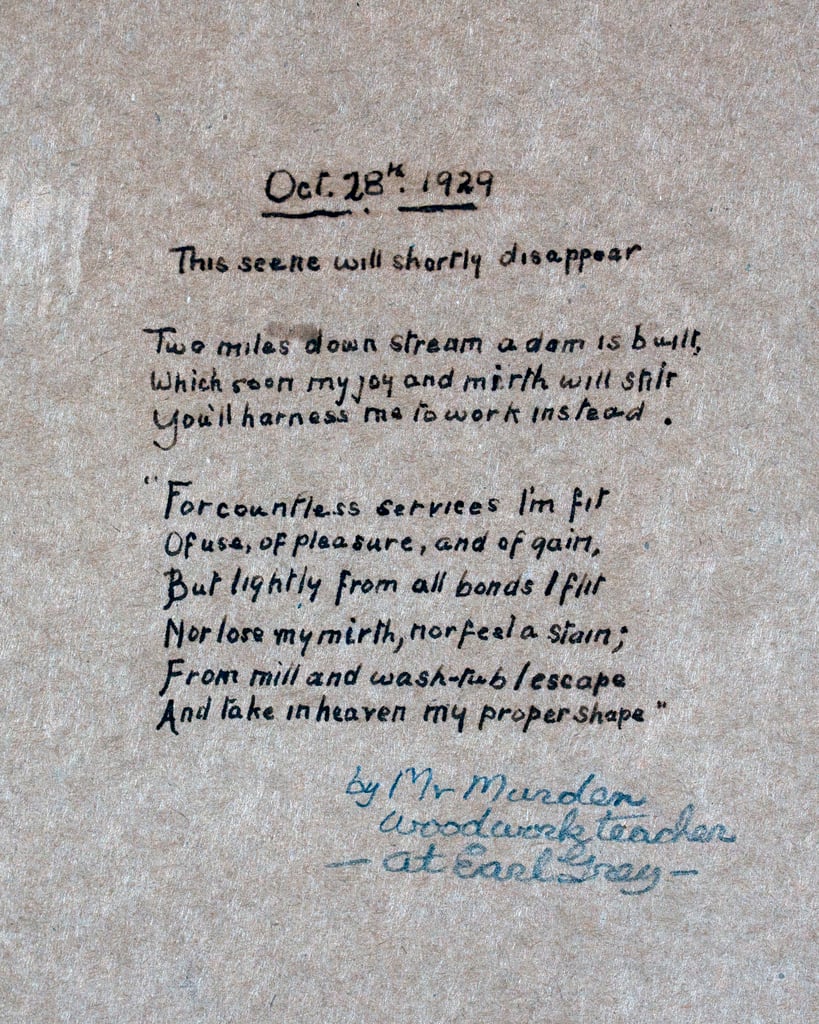 Oct. 28th. 1929
This scene will shortly disappear
Two miles down stream a dam is built,
Which soon my joy and mirth will stilt
You'll harness me to work instead.
"For countless services I'm fit
Of use, of pleasure, and of gain,
But lightly from all bonds I flit
Nor lose my mirth, nor feel a stain;
From mill and wash-tub I escape
And take in heaven my proper shape"
by Mr Murden
Woodwork teacher
— at Earl Grey —